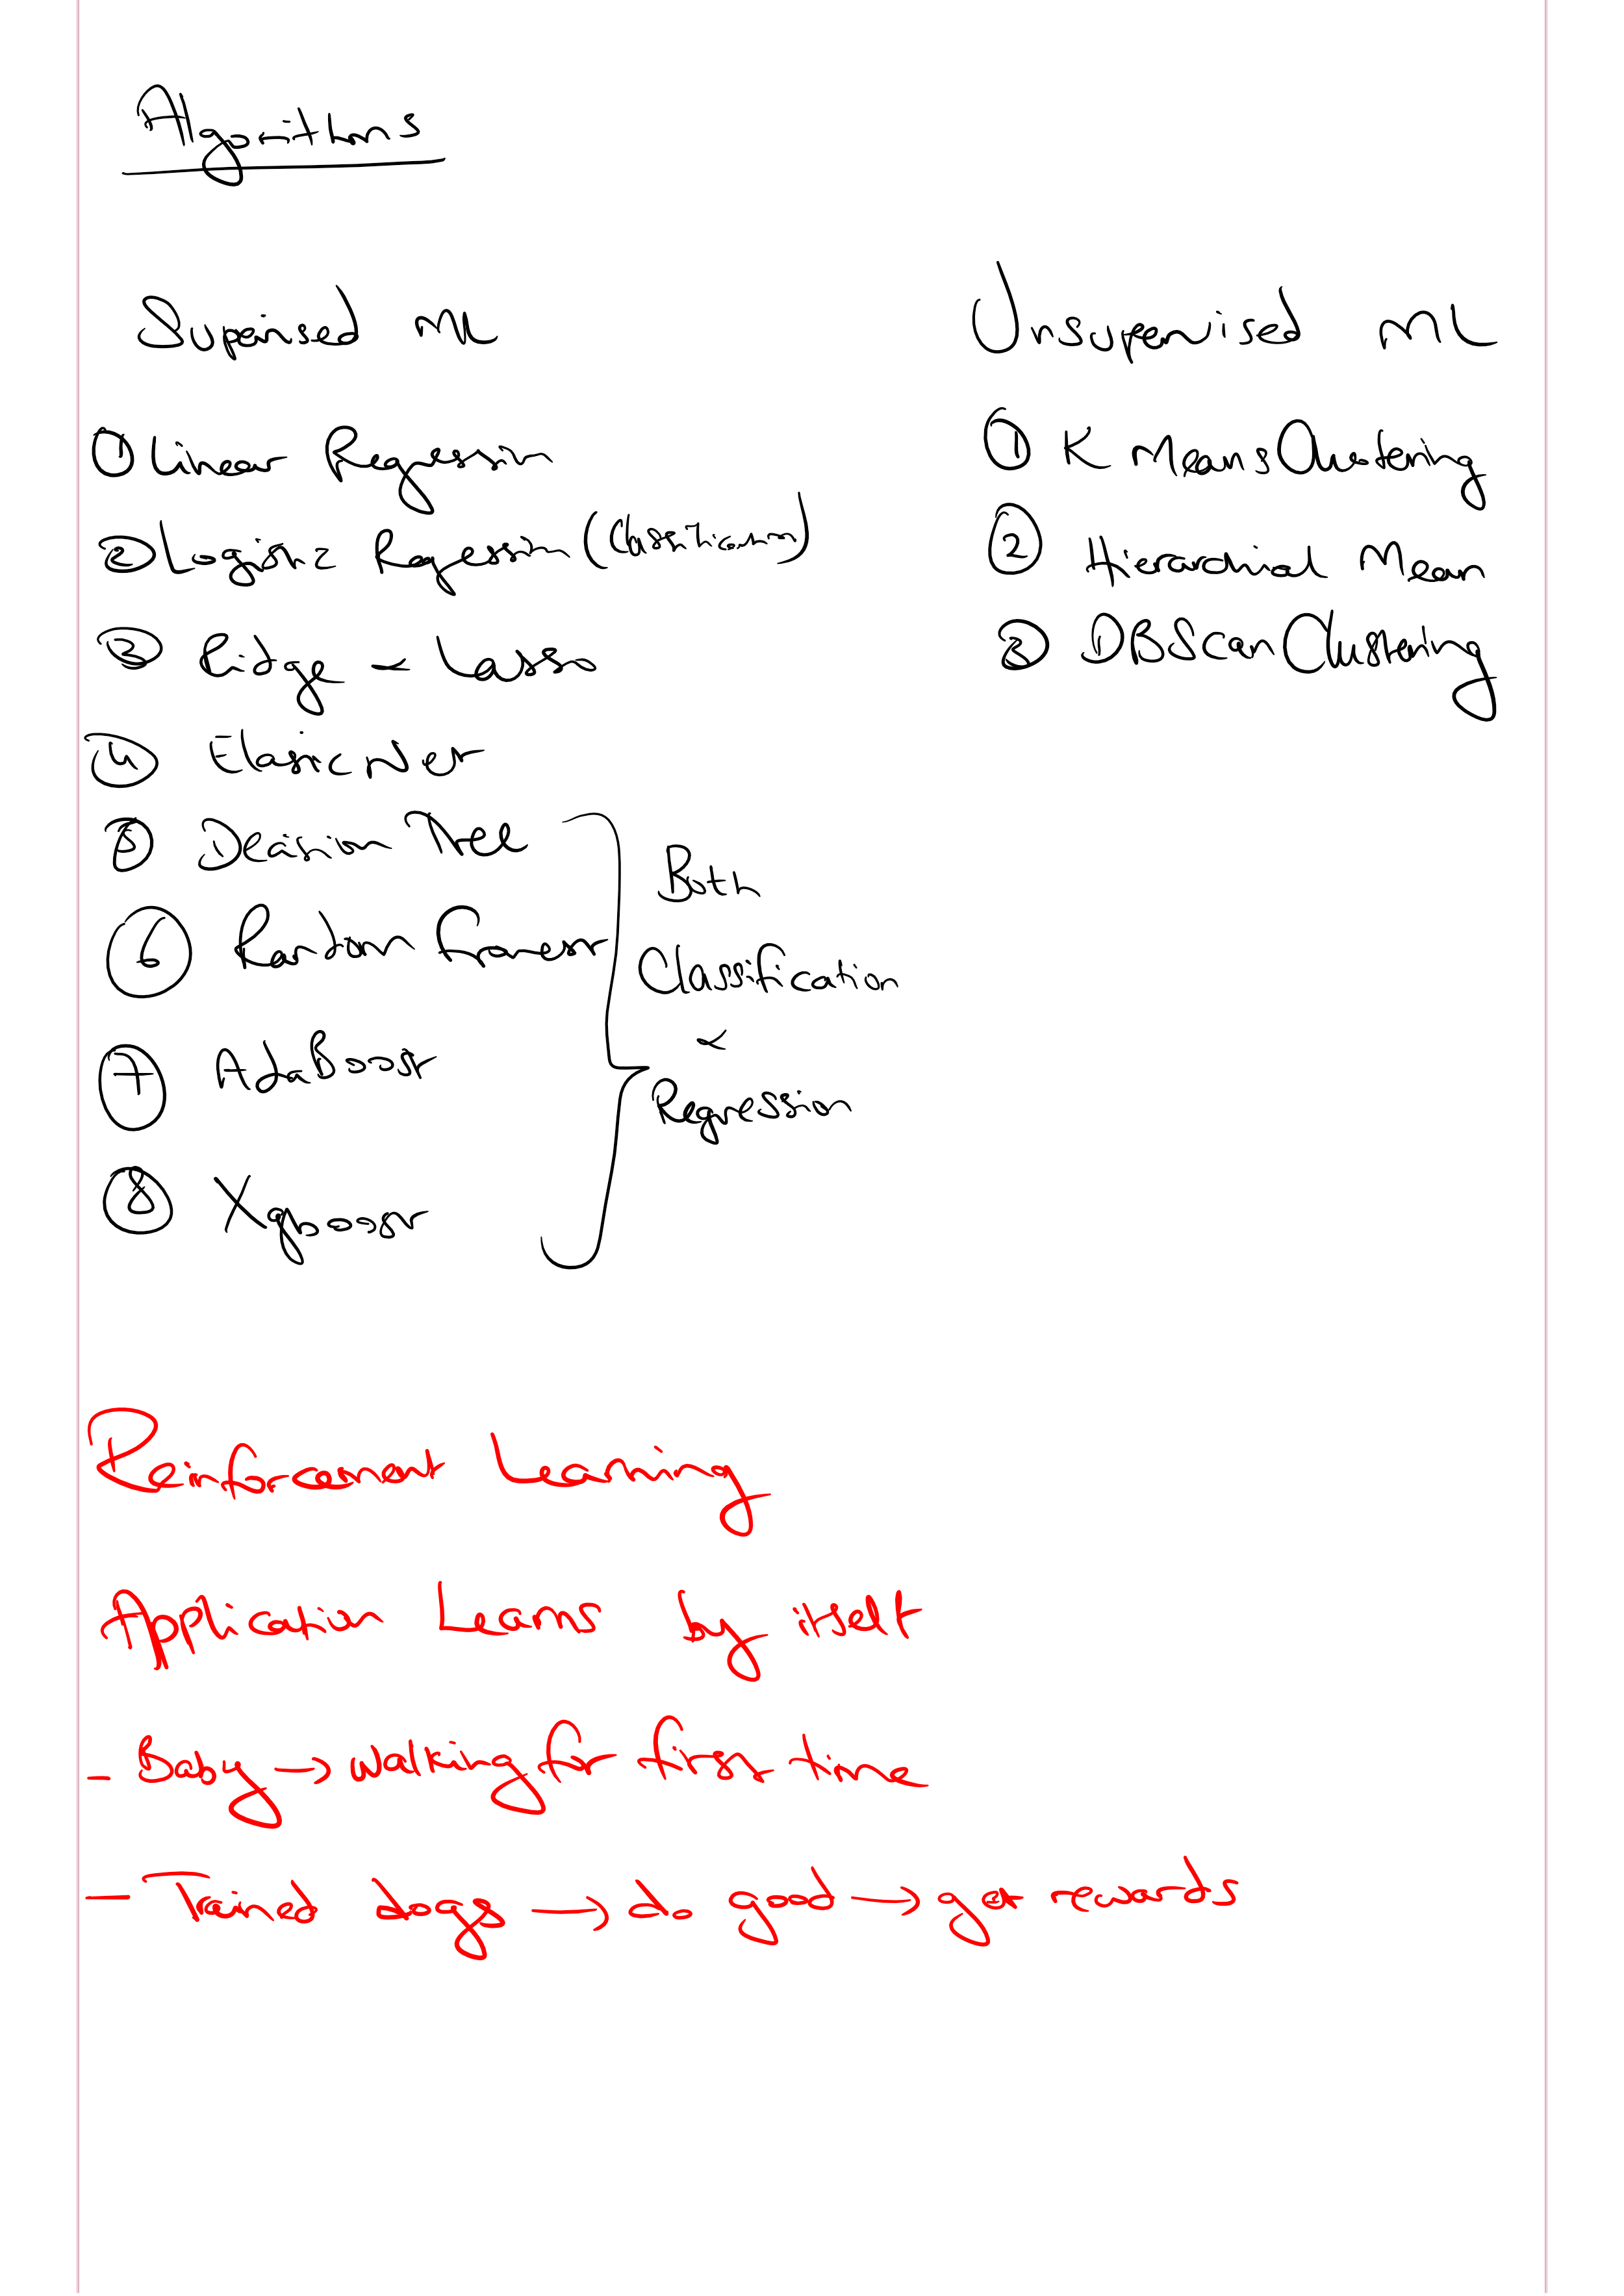 Algorithms
Supervised ML
① Linear Regression
② Logistic Regression (Classification)
③ Ridge - Lasso
④ Elastic Net
⑤ Decision Tree
⑥ Random Forest
⑦ AdaBoost
⑧ Xgboost
Both
Classification
&
Regression
Unsupervised ML
① K Means Clustering
② Hierarchial Mean
③ DBScan Clustering
Reinforcement Learning
Application Learns by itself
- Baby → walking for first time
- Trained dogs → do good → get rewards